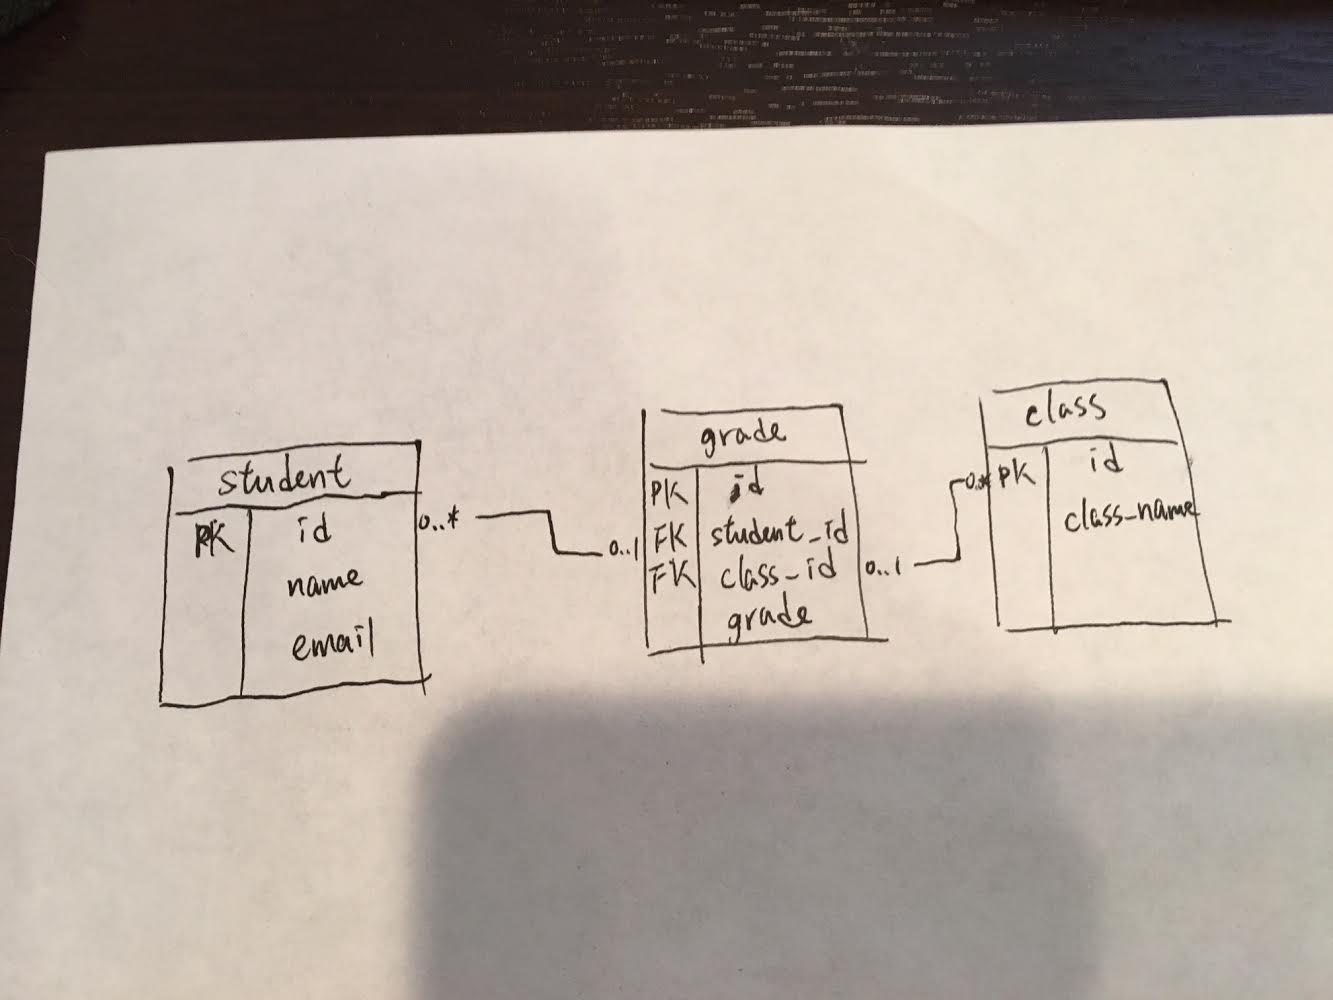 student
PK id
name
email
0..*
0..1
grade
PK id
FK student_id
FK class_id
grade
0..1
0..*
class
PK id
class_name